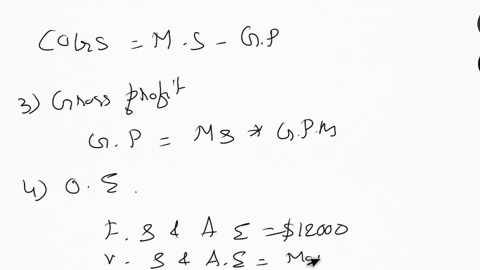 COGS = M.S - G.P
3) Gross profit
G.P = MS * G.P.M
4) O.E.
F. S & A E = $12000
V. S & A.E = MS